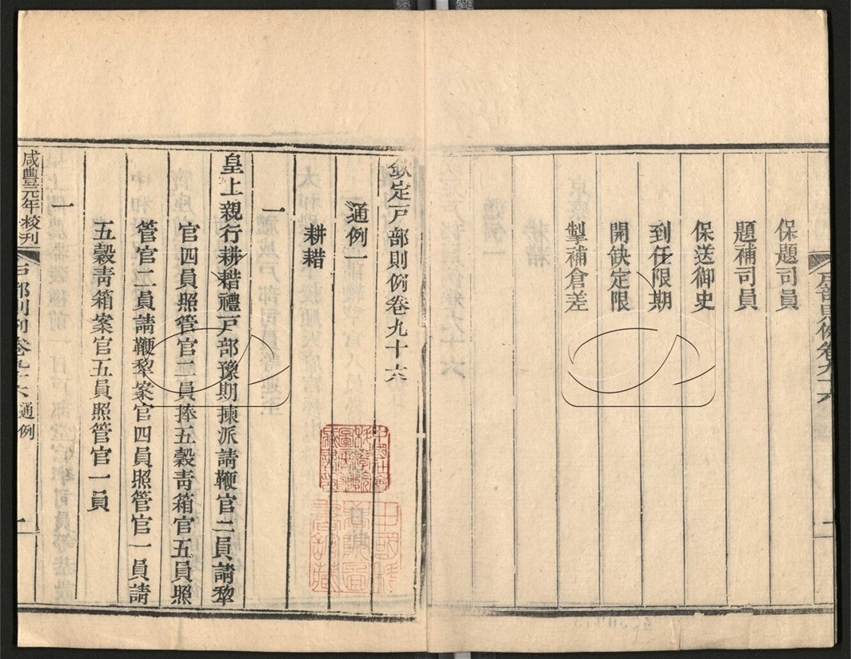 保題司員
題補司員
保送御史
到任限期
開缺定限
掣補倉差
欽定戸部則例卷九十六
通例一
耕耤
一
皇上親行耕耤禮戸部豫期揀派請鞭官二員請犂
官四員照管官二員捧五穀青箱官五員照
管官二員請鞭犂案官四員照管官一員請
五穀青箱案官五員照管官一員
一
咸豐元年校刊
戸部則例卷九十六 通例
一